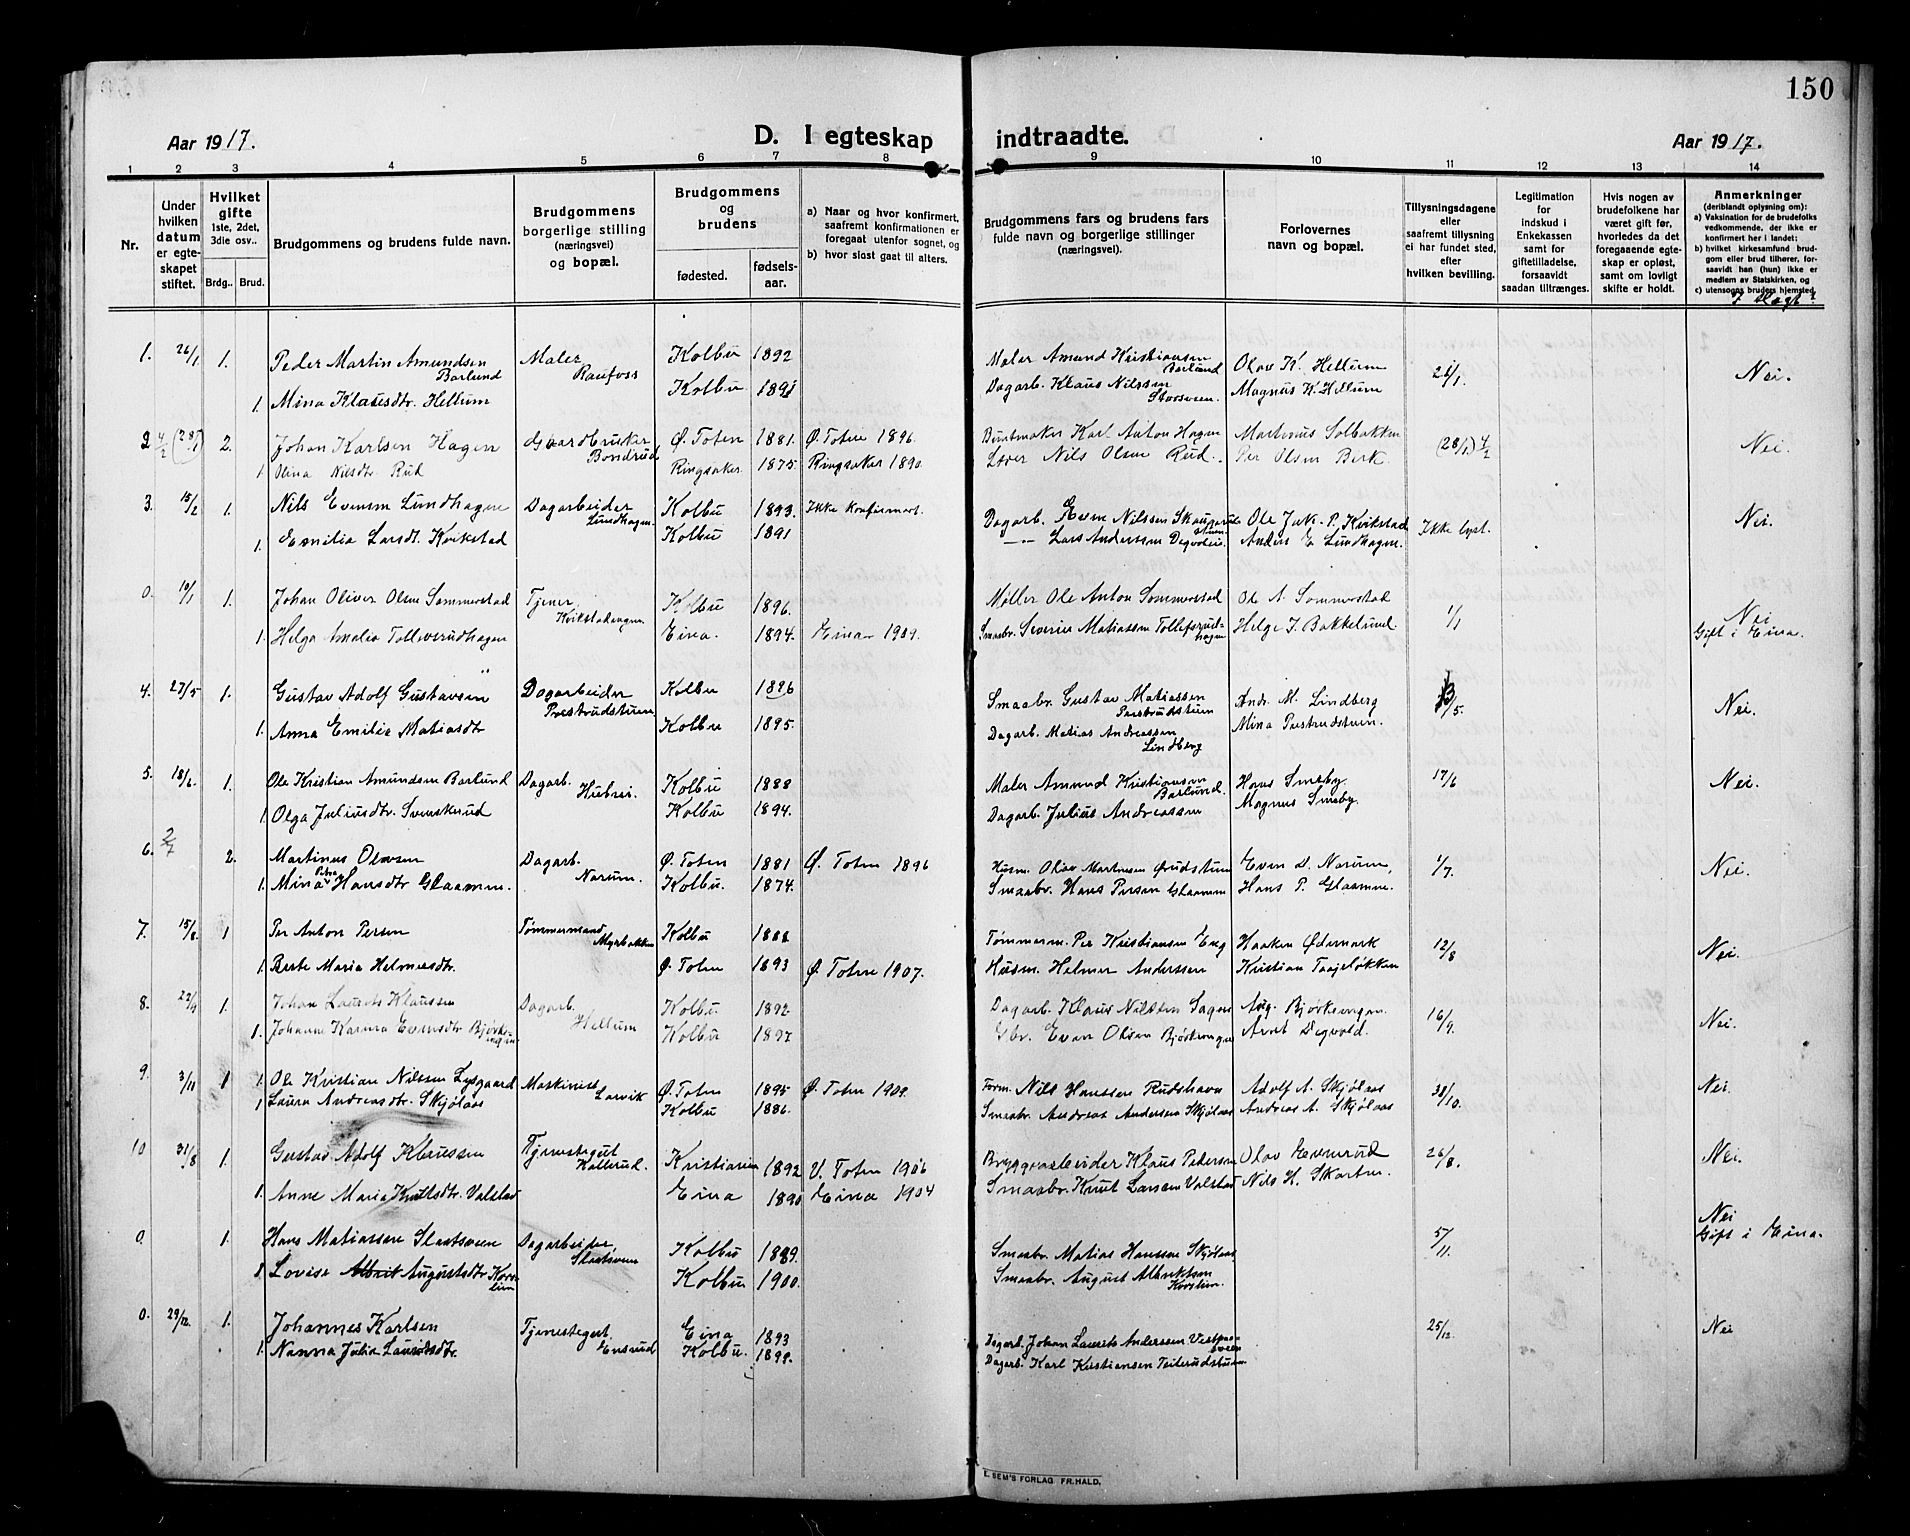 150
Aar 1917.
D. I egteskap indtraadte.
Aar 1917.
1 2 3 4 5 6 7 8 9 10 11 12 13 14
Nr.
Under hvilken datum er egte- skapet stiftet.
Hvilket gifte 1ste, 2det, 3die osv..
Brdg.. Brud.
Brudgommens og brudens fulde navn.
Brudgommens borgerlige stilling (næringsvei) og bopæl.
Brudgommens og brudens
fødested.
fødsels- aar.
a) Naar og hvor konfirmert, saafremt konfirmationen er foregaat utenfor sognet, og
b) hvor sidst gaat til alters.
Brudgommens fars og brudens fars fulde navn og borgerlige stillinger (næringsvei).
Forlovernes navn og bopæl.
Tillysningsdagene eller saafremt tillysning ei har fundet sted, efter hvilken bevilling.
Legitimation for indskud i Enkekassen samt for giftetilladelse, forsaavidt saadan tiltrænges.
Hvis nogen av brudefolkene har været gift før, hvorledes da det foregaaende egte- skap er opløst, samt om lovligt skifte er holdt.
Anmerkninger (deriblandt oplysning om): a) Vaksination for de brudefolks vedkommende, der ikke er konfirmert her i landet: b) hvilket kirkesamfund brud- gom eller brud tilhører, for- saavidt han (hun) ikke er medlem av Statskirken, og c) utensogns bruders hjemsted.
1. 26/1 1. Peder Martin Amundsen Barlund Maler Raufoss Kolbu 1892 Maler Amund Kristiansen Barlund Olav K. Hellum 21/1. Nei.
1. Mina Klausdtr. Hellum Kolbu 1891 Dagarb. Klaus Nilssen Storsveen. Magnus K. Hellum
2 4/2 (28/1) 2. Johan Karlsen Hagen Gaardbruker Bondrud Ø. Toten 1881. Ø. Toten 1896. Buntmaker Karl Anton Hagen Martinus Solbakken (28/1) 4/2 Nei.
1 Olina Nilsdtr Rud Ringsaker 1875. Ringsaker 1890. Nils Olsen Rud. Per Olsen Birk
3. 15/2 1. Nils Evensen Lundhagen Dagarbeider Lundhagen Kolbu 1893. Ikke konfirmert. Dagarb. Even Nilssen Ole Jak. P. Kvikstad Ikke lyst. Nei.
1. Emilie Larsdt. Kvikstad Kolbu 1891 Lars Anderssen Anders E Lundhagen.
0. 10/1 1. Johan Oliver Olsen Sommerstad Tjener Kvikstadengen Kolbu 1896. Møller Ole Anton Sommerstad Ole A. Sommerstad 1/1 Nei
1. Helga Amalia Tollevrudhagen Eina. 1894. Eina 1909. Smaabr. Severin Matiassen Tollefsrudhagen Helge J. Bakkelund Gift i Eina.
4. 27/5 1. Gustav Adolf Gustavsen Dagarbeider Prestrudstuen Kolbu 1896 Smaabr. Gustav Matiassen Perstrudstuen Andr. M. Lindberg /5. Nei.
1. Anna Emilie Matiasdtr Kolbu 1895. Dagarb. Matias Andreassen Lindberg Mina Prestrudstuen.
5. 18/6. 1. Ole Kristian Amundsen Barlund Dagarb. Kolbu 1888 Maler Amund Kristiansen Barlund. Hans Smeby. 17/6 Nei.
1 Olga Juliusdtr. Svenskrud Kolbu 1894. Dagarb. Julius Andreassen Magnus Smeby.
6. 2/7 2. Martinus Olavsen Dagarb. Narum. Ø. Toten 1881 Ø. Toten 1896 Husm. Olav Martinsen Even D. Narum, 1/7. Nei.
1. Mina Petra Hansdtr Glaamen. Kolbu. 1874. Smaabr. Hans Persen Glaamen Hans P. Glaamen.
7. 15/8. 1 Per Anton Persen Tømmermand Myrbakken Kolbu 1888 Tømmerm. Per Kristiansen Eng Haaken Ødemark 12/8 Nei.
1. Berte Maria Helmersdtr. Ø. Toten 1893 Ø. Toten 1907. Husm. Helmer Anderssen Kristian Taajeløkken
8. 1. Johan Laurits Klaussen Dagarb. Hellum Kolbu 1892 Dagarb. Klaus Nilssen Aug. Bjørkengen. 16/9. Nei.
1. Johanne Karina Evensdtr Bjørkeengen Kolbu 1897 Gbr. Even Olsen Bjørkeengen Arvet Degvold.
9. 3/11 1 Ole Kristian Nilssen Lysgaard Maskinist Larvik Ø. Toten 1895 Ø. Toten 1909. Form. Nils Hanssen Rudshavn Adolf A. Skjølaas /10. Nei.
1 Laura Andreasdtr. Skjølaas Kolbu 1886. Smaabr. Andreas Andersen Skjølaas Andreas A. Skjølaas
10 31/8 1. Gustav Adolf Klaussen Tjenestegut Kallerud. Kristiania 1892 V. Toten 1906 Bryggearbeider Klaus Pedersen Olav Evenrud 26/8. Nei.
1. Anne Maria Knutsdtr. Valstad Eina 1890 Eina 1904 Smaabr. Knut Larsen Valstad Nils H. Skartun
0. 1. Hans Matiassen Slaatsveen Dagarbeider Slaatsveen Kolbu 1889. Smaabr. Matias Hanssen Skjølaas 5/11. Nei
1 Lovise Augustdtr Korslien Kolbu 1900. Smaabr. August Albriktsen Korslien. Gift i Eina.
0. 29/12. 1. Johannes Karlsen Tjenestegut. Ensrud Eina 1893 Dagarb. Johan Laurits Anderssen 25/12. Nei
1. Nanna Julie Lauritsdtr. Kolbu. 1898. Dagarb. Karl Kristiansen Teiterudstuen
E. SEM'S FORLAG FR.HALD.